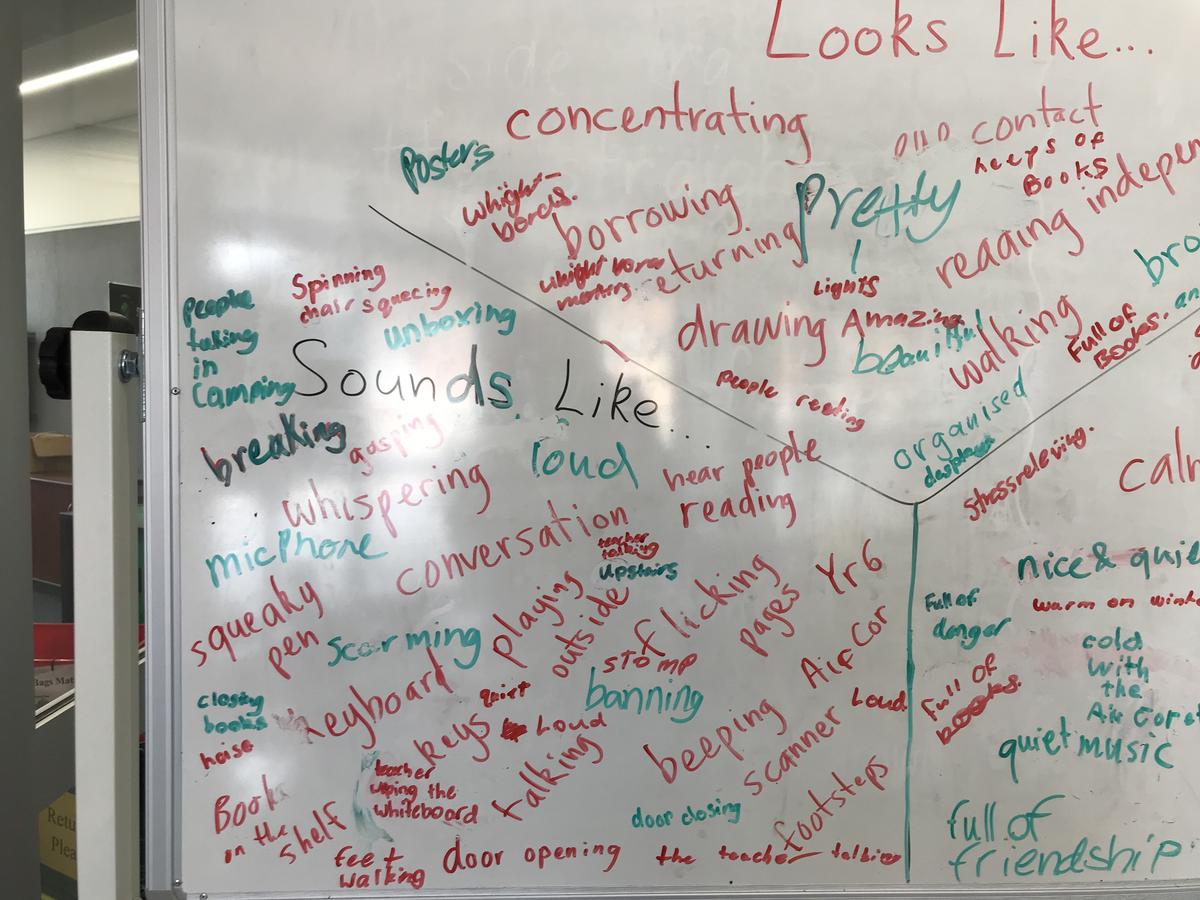 Looks Like...
concentrating
contact
Posters
heeps of
Books
whight-
bords.
borrowing
Pretty
reading indepen
returning
whight bord
markers
Lights
bro
an
Spinning
chair squecing
People
talking
in
Camping
unboxing
drawing
Amazing
beautiful
walking
Full of
Books.
Sounds Like...
People reading
organised
breaking
gasping
loud
hear people
reading
stressreleving.
calm
whispering
micPhone
conversation
teacher
talking
upstairs
nice & quie
squeaky
pen
scarming
playing
outside
flicking
pages
Yr6
Full of
danger
warm on winte
cold
with
the
Air Cor
closing
books
noise
keyboard
keys
quiet
Loud
stomp
banning
Air Cor
Loud
full of
books.
quiet music
Books
in the
shelf
teacher
whiteboard
talking
beeping
scanner
door closing
footsteps
feet
walking
door opening
the teacher talking
full of
friendship
Bags Mat
Retu
Plea